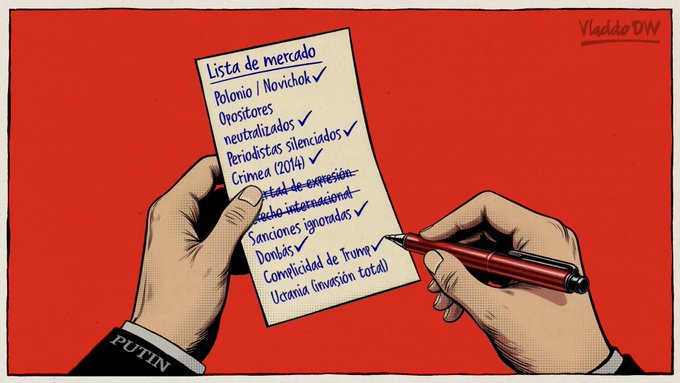 Vladdo DW
Lista de mercado
Polonio / Novichok ✓
Opositores
neutralizados ✓
Periodistas silenciados ✓
Crimea (2014) ✓
rtad de expresión
echo internacional
Sanciones ignoradas ✓
Donbás ✓
Complicidad de Trump ✓
Ucrania (invasión total)
PUTIN